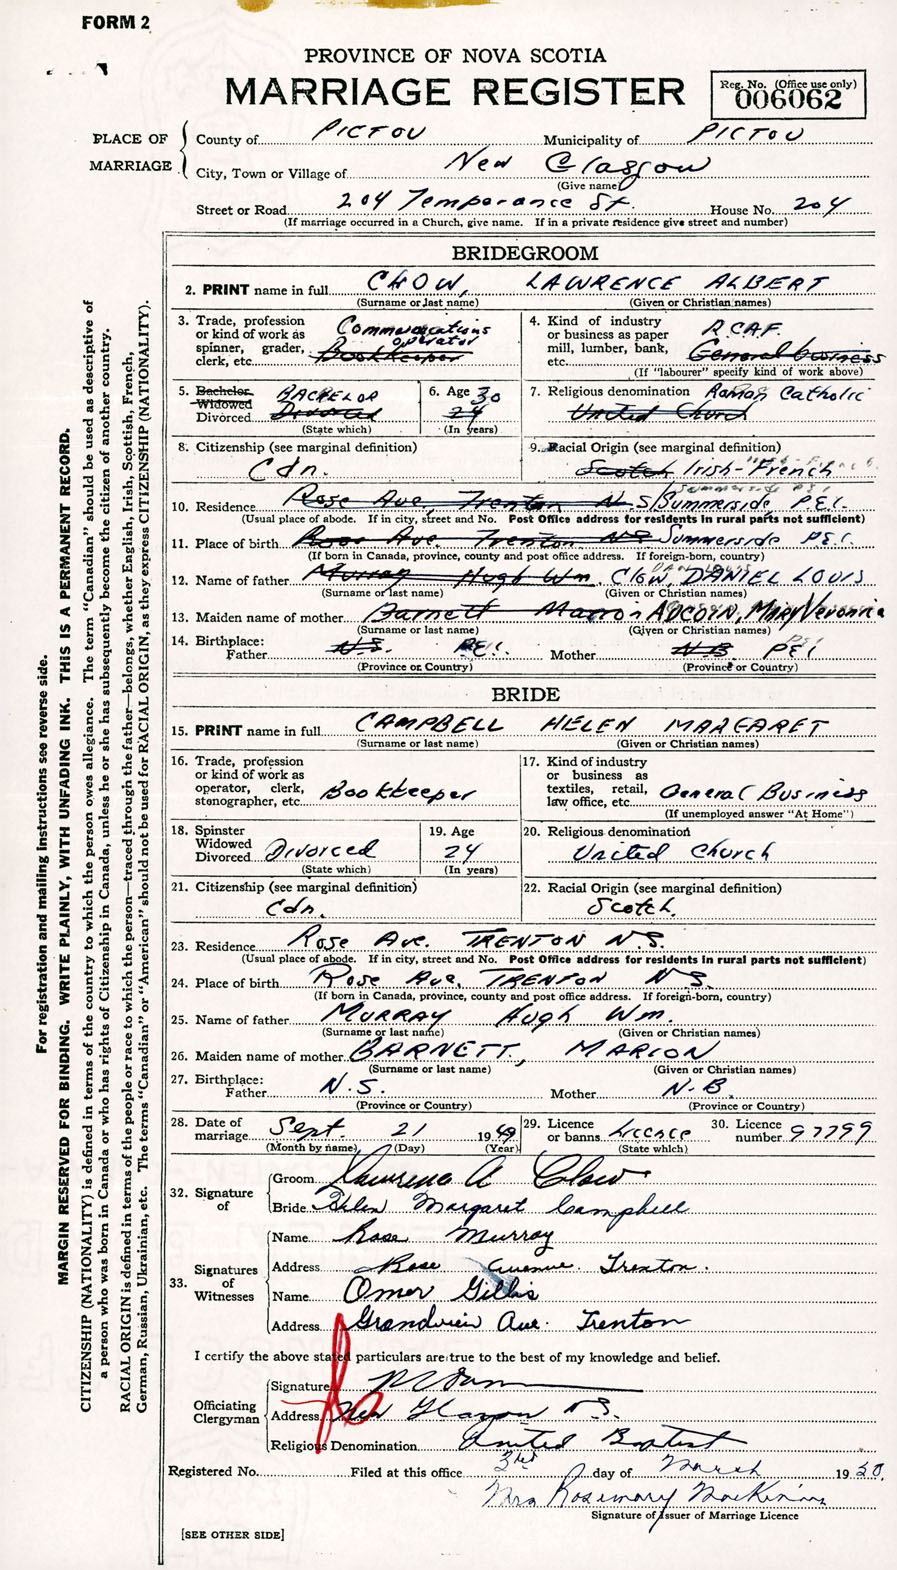 FORM 2
PROVINCE OF NOVA SCOTIA
MARRIAGE REGISTER
Reg. No. (Office use only)
006062
PLACE OF MARRIAGE
County of PICTOU Municipality of PICTOU
City, Town or Village of New Glasgow
(Give name)
Street or Road 204 Temperance St. House No. 204
(If marriage occurred in a Church, give name. If in a private residence give street and number)
BRIDEGROOM
2. PRINT name in full CLOW, LAWRENCE ALBERT
(Surname or last name) (Given or Christian names)
3. Trade, profession or kind of work as spinner, grader, clerk, etc. Communications operator Bookkeeper
4. Kind of industry or business as paper mill, lumber, bank, etc. R.C.A.F. General business
(If "labourer" specify kind of work above)
5. Bachelor Widowed Divorced BACHELOR Divorced
(State which)
6. Age 30 24
(In years)
7. Religious denomination Roman Catholic United Church
8. Citizenship (see marginal definition)
Cdn.
9. Racial Origin (see marginal definition)
Scotch Irish-French
10. Residence Rose Ave, Trenton N.S. Summerside, P.E.I.
(Usual place of abode. If in city, street and No. Post Office address for residents in rural parts not sufficient)
11. Place of birth Rose Ave. Trenton NS Summerside P.E.I.
(If born in Canada, province, county and post office address. If foreign-born, country)
12. Name of father Murray Hugh Wm. Clow, DANIEL LOUIS
(Surname or last name) (Given or Christian names)
13. Maiden name of mother Barnett Marion ADCORN, MARY Veronica
(Surname or last name) (Given or Christian names)
14. Birthplace:
Father N.S. P.E.I. Mother N.B. PEI
(Province or Country) (Province or Country)
BRIDE
15. PRINT name in full CAMPBELL HELEN MARGARET
(Surname or last name) (Given or Christian names)
16. Trade, profession or kind of work as operator, clerk, stenographer, etc. Bookkeeper
17. Kind of industry or business as textiles, retail, law office, etc. General Business
(If unemployed answer "At Home")
18. Spinster Widowed Divorced Divorced
(State which)
19. Age
24
(In years)
20. Religious denomination
United Church
21. Citizenship (see marginal definition)
Cdn.
22. Racial Origin (see marginal definition)
Scotch.
23. Residence Rose Ave. TRENTON N.S.
(Usual place of abode. If in city, street and No. Post Office address for residents in rural parts not sufficient)
24. Place of birth Rose Ave, TRENTON N S
(If born in Canada, province, county and post office address. If foreign-born, country)
25. Name of father MURRAY Hugh Wm.
(Surname or last name) (Given or Christian names)
26. Maiden name of mother BARNETT, MARION
(Surname or last name) (Given or Christian names)
27. Birthplace:
Father N.S. Mother N.B.
(Province or Country) (Province or Country)
28. Date of marriage Sept. 21 1949
(Month by name) (Day) (Year)
29. Licence or banns Licence
(State which)
30. Licence number 97799
32. Signature of
Groom Lawrence A Clow
Bride Helen Margaret Campbell
33. Signatures of Witnesses
Name Rose Murray
Address Rose Avenue. Trenton.
Name Omer Gillis
Address Grandview Ave. Trenton
I certify the above stated particulars are true to the best of my knowledge and belief.
Officiating Clergyman
Signature
Address New Glasgow N.S.
Religious Denomination United Baptist
Registered No. Filed at this office 3rd day of March 1950.
Mrs Rosemary MacKinnon
Signature of Issuer of Marriage Licence
[SEE OTHER SIDE]
For registration and mailing instructions see reverse side.
MARGIN RESERVED FOR BINDING. WRITE PLAINLY, WITH UNFADING INK. THIS IS A PERMANENT RECORD.
CITIZENSHIP (NATIONALITY) is defined in terms of the country to which the person owes allegiance. The term "Canadian" should be used as descriptive of
a person who was born in Canada or who has rights of Citizenship in Canada, unless he or she has subsequently become the citizen of another country.
RACIAL ORIGIN is defined in terms of the people or race to which the person—traced through the father—belongs, whether English, Irish, Scottish, French,
German, Russian, Ukrainian, etc. The terms "Canadian" or "American" should not be used for RACIAL ORIGIN, as they express CITIZENSHIP (NATIONALITY).